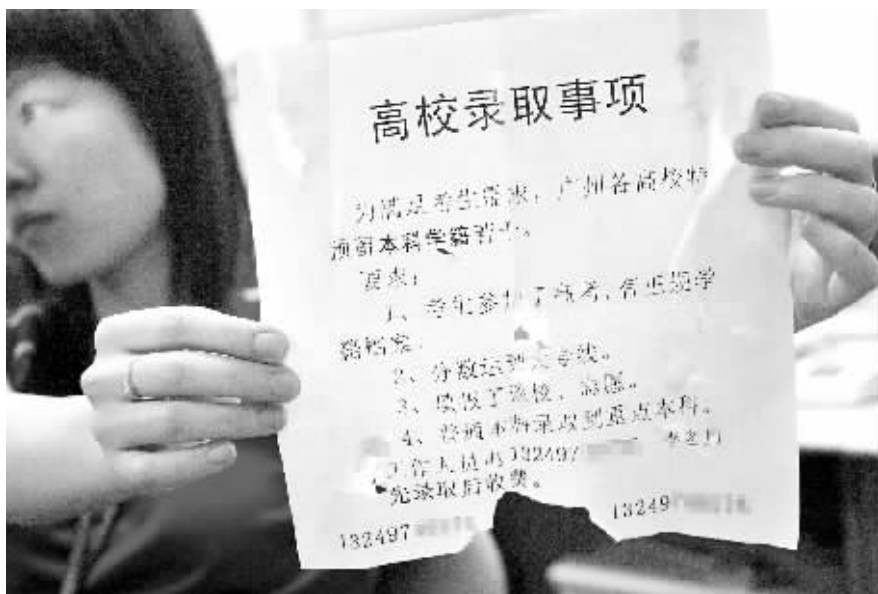 高校录取事项
为满足考生需求,广州各高校特
预留本科学籍
要求:
1、考生参加了高考,有正规学
籍档案。
2、分数达到大专线。
3、填报了选校、志愿。
4、普通本科录取到重点本科。
工作人员 132497
先录取后收费。
132497
13249